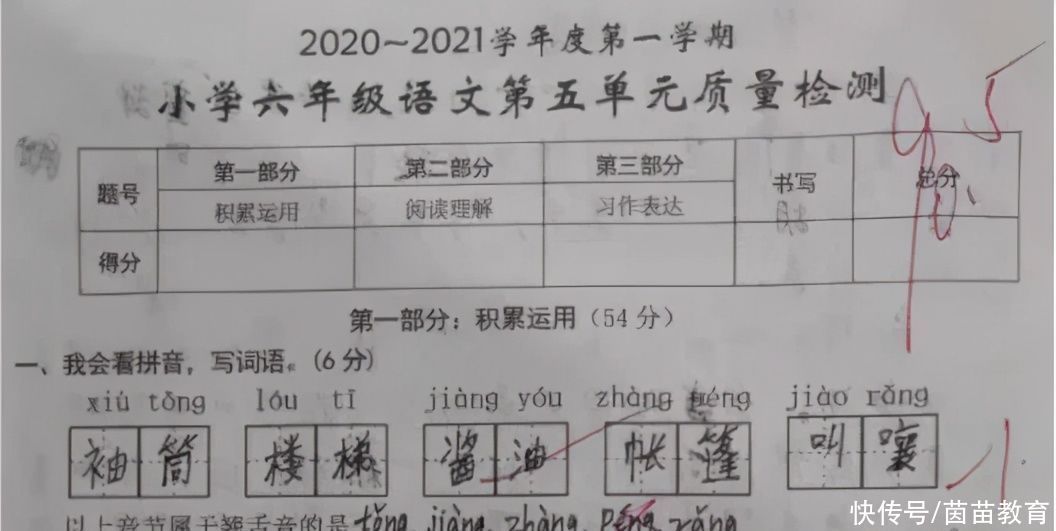 2020~2021学年度第一学期
小学六年级语文第五单元质量检测
95
题号 第一部分 第二部分 第三部分 书写 总分
积累运用 阅读理解 习作表达
得分
第一部分：积累运用（54分）
一、我会看拼音，写词语。(6分)
xiù tǒng lóu tī jiàng yóu zhàng péng jiào rǎng
袖筒 楼梯 酱油 帐篷 叫嚷
以上音节属于翘舌音的是 tǒng jiàng zhàng péng rǎng
快传号/茵苗教育